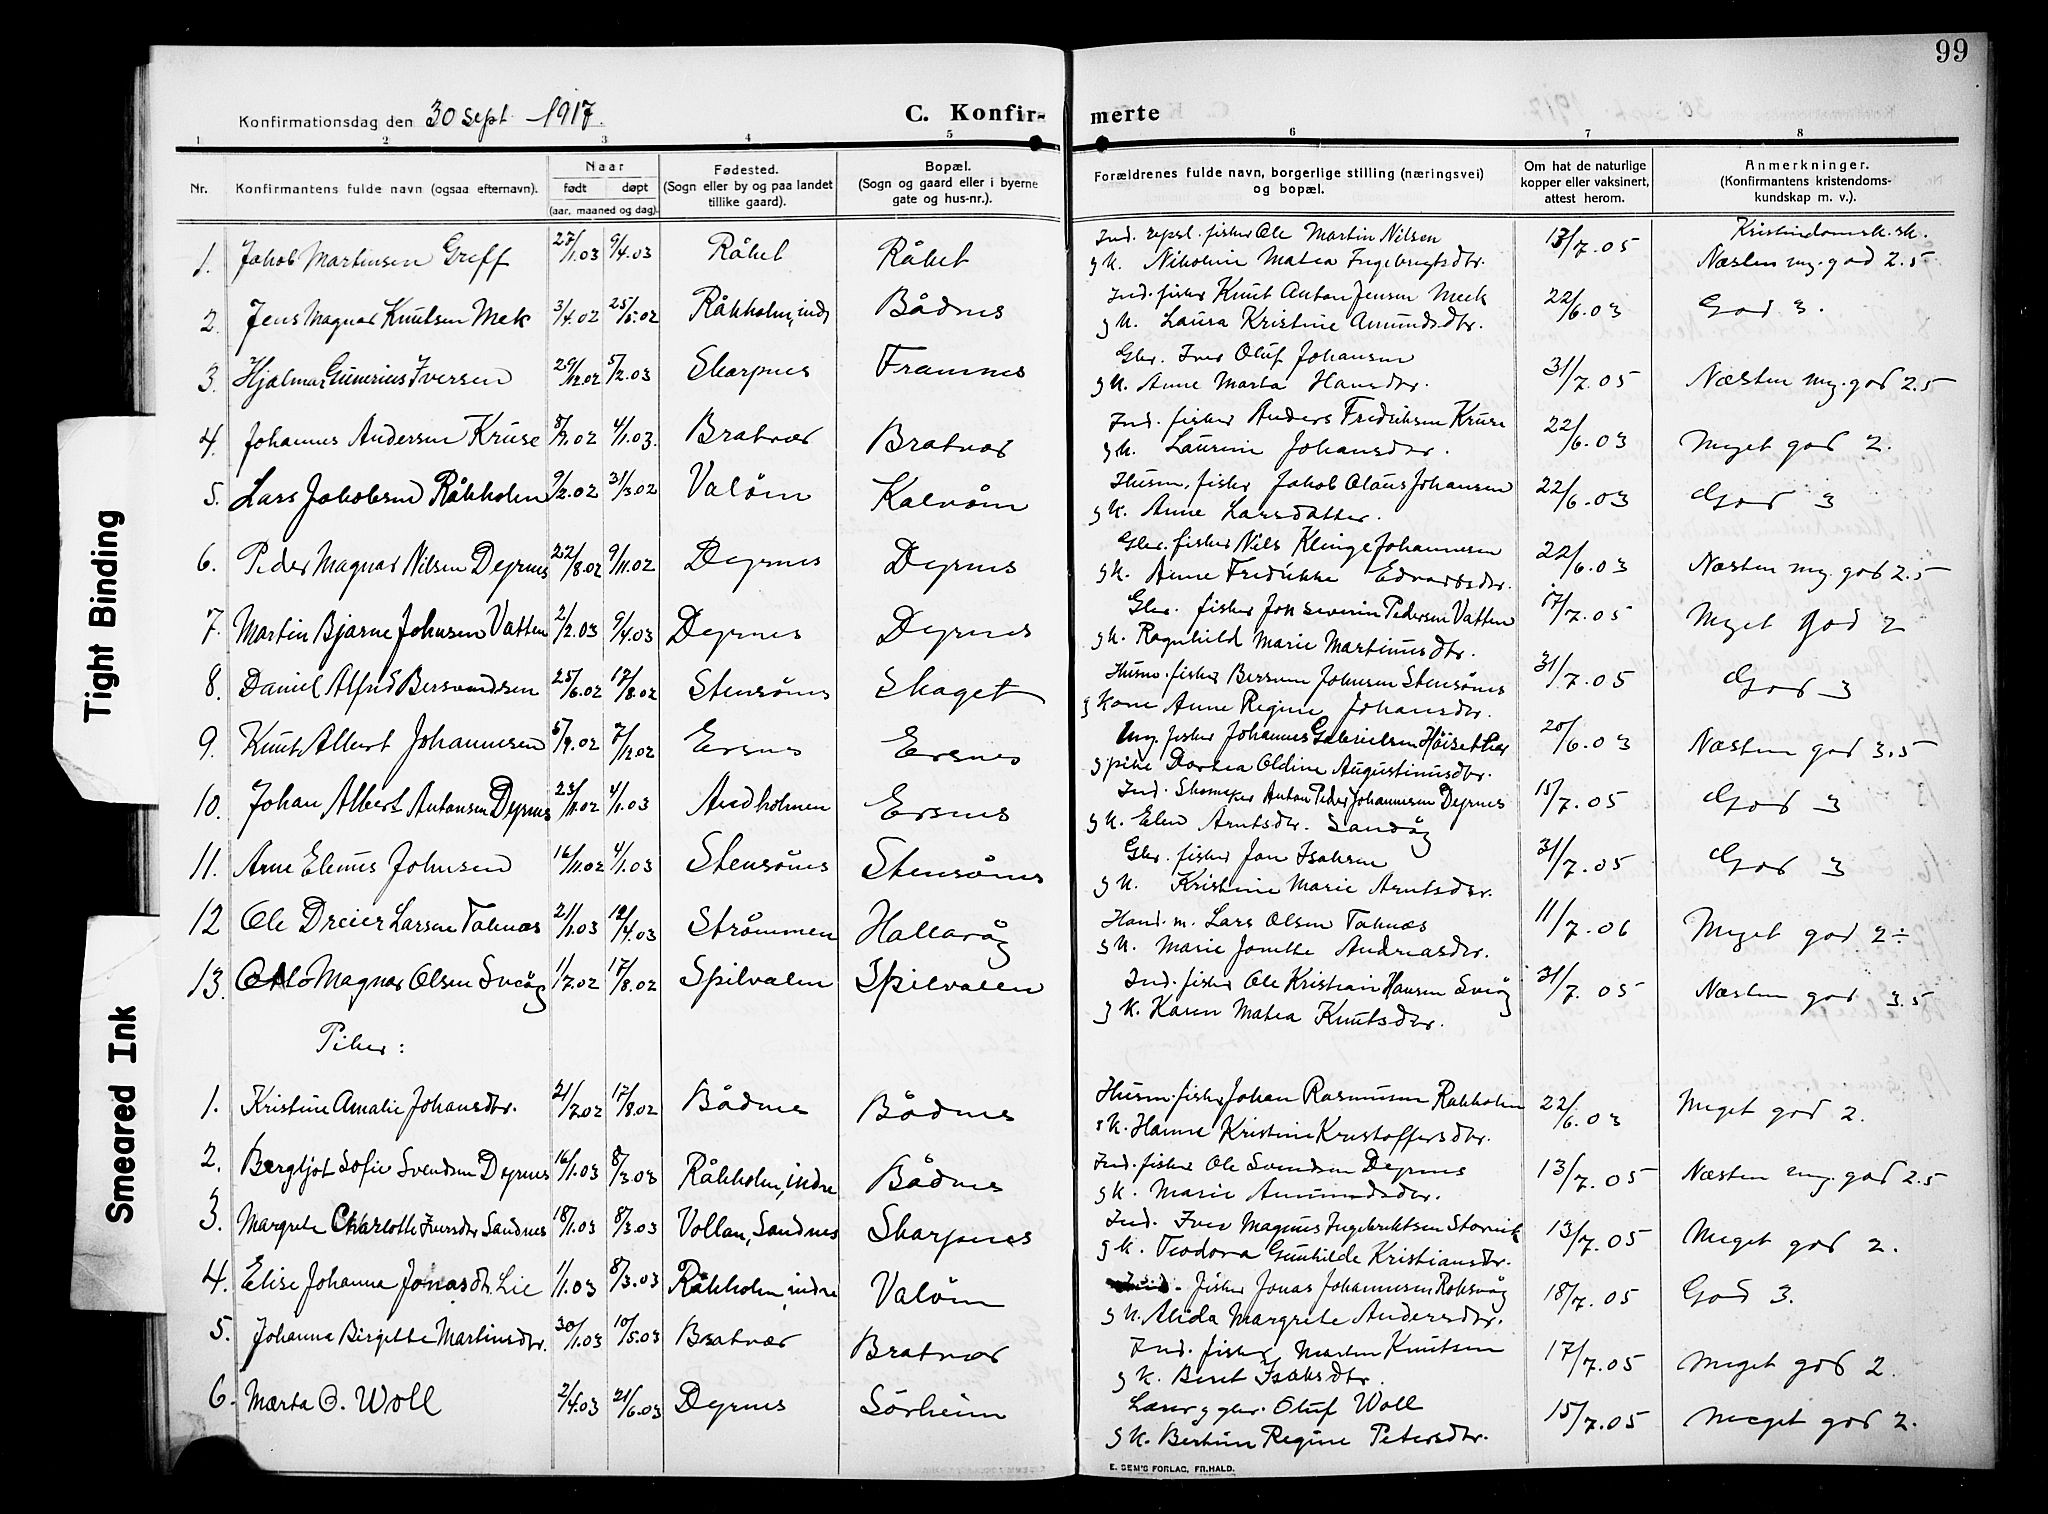 99
Konfirmationsdag den 30 sept. 1917.
C. Konfir- merte
1 2 3 4 5 6 7 8
Nr. Konfirmantens fulde navn (ogsaa efternavn). Naar født døpt (aar, maaned og dag). Fødested. (Sogn eller by og paa landet tillike gaard). Bopæl. (Sogn og gaard eller i byerne gate og hus-nr.). Forældrenes fulde navn, borgerlige stilling (næringsvei) og bopæl. Om hat de naturlige kopper eller vaksinert, attest herom. Anmerkninger. (Konfirmantens kristendoms- kundskap m. v.).
1. Jakob Martinsen Greff 27/1.03 9/4.03 Råket Råket Ind. fisker Ole Martin Nilsen 13/7.05 Kristendomsk. sk.
g K. Nikoline Matea Ingebrigtsdtr. Næsten mg. god 2.5
2. Jens Magnar Knutsen Mek 3/4.02 25/5.02 Råkholm, indr Bådnes Ind. fisker Knut Anton Jensen Meek 22/6.03 God 3.
g K. Laura Kristine Amundsdtr.
3. Hjalmar Gunerius Iversen 29/12.02 5/2.03 Skarpnes Framnes Gbr. Iver Oluf Johansen 31/7.05 Næsten mg. god 2.5
g K. Anne Marta Hansdtr.
4. Johannes Andersen Kruse 8/7.02 4/1.03. Bratvær Bratvær Ind. fisker Anders Fredriksen Kruse 22/6.03 Meget god 2.
g K. Laurine Johansdtr.
5. Lars Jakobsen Råkholm 9/2.02 31/3.02 Valöm Kalvöm Husm. fisker Jakob Olaus Johansen 22/6.03 God 3
g K. Anne Larsdatter.
6. Peder Magnar Nilsen Dyrnes 22/8.02 9/11.02 Dyrnes Dyrnes Gbr. fisker Nils Klinge Johannesen 22/6.03 Næsten mg. god 2.5
g K. Anne Fredrikke Edvardsdtr.
7. Martin Bjarne Johnsen Vatten 2/2.03 9/4.03 Dyrnes Dyrnes Gbr. fisker Jon Severin Pedersen Vatten 17/7.05 Meget God 2
g K. Ragnhild Marie Martinusdtr.
8. Daniel Alfred Bersvendsen 25/6.02 17/8.02 Stensönes Skaget Husm. fisker Johnsen Stensönes 31/7.05 God 3
g Kone Anne Regine Johansdtr.
9. Knut Albert Johannesen 5/9.02 7/12.02 Ersnes Ersnes Ung. fisker Johannes Gabrielsen Höiseth 20/6.03 Næsten god 3.5
g pike Dortea Oldine Augustinusdtr.
10. Johan Albert Antonsen Dyrnes 23/11.02 4/1.03 Andholmen Ersnes Ind. Skomaker Anton Peder Johannesen Dyrnes 15/7.05 God 3
g K. Elen Arntsdtr. Sandög
11. Arne Elenus Johnsen 16/11.02 4/1.03 Stensönes Stensönes Gbr. fisker Jon Isaksen 31/7.05 God 3
g K. Kristine Marie Arntsdtr.
12 Ole Dreier Larsen Talnæs 21/1.03 12/4.03 Strömmen Hallarög Hand. m. Lars Olsen Talnæs 11/7.06 Meget god 2÷
g K. Marie Jonette Andreasdtr.
13. Magnar Olsen Sveög 1/7.02 17/8.02 Spilvalen Spilvalen Ind. fisker Ole Kristian Hansen 31/7.05 Næsten god 3.5
g K. Karen Matea Knutsdtr.
Piker:
1. Kristine Amalie Johansdtr. 21/7.02 17/8.02 Bådnes Bådnes Husm. fisker Johan Rasmussen Rakholm 22/6.03 Meget god 2.
g K. Hanne Kristine Kristoffersdtr.
2. Bergljot Sofie Svendsen Dyrnes 16/1.03 8/3.03 Råkholm, indre Bådnes Ind. fisker Ole Svendsen Dyrnes 13/7.05 Næsten mg. god 2.5
g K. Marie Amundsdtr.
3. Margrete Charlotte Iversdtr Sandnes 18/1.03 8/3.03 Vollan, Sandnes Skarpnes Ind. Iver Magnus Ingebriktsen Storvik 13/7.05 Meget god 2.
g K. Teodora Gunhilde Kristiansdtr.
4. Elise Johanna Jonasdtr. Lie 1/1.03 8/3.03 Råkholm, indre Valöm Ind. fisker Jonas Johannesen Roksvåg 18/7.05 God 3.
g K. Alida Margrete Andersdtr.
5. Johanna Birgitte Martinsdtr. 30/1.03 10/5.03 Bratvær Bratvær Ind. fisker Martin Knutsen 17/7.05 Meget god 2.
g K. Beret Isaksdtr.
6. Marta O. Woll 2/4.03 21/6.03 Dyrnes Sörheim Lærer g gbr. Oluf Woll 15/7.05 Meget god 2.
g K. Bertine Regine Petersdtr.
E. SEM'S FORLAG, FR.HALD.
Tight Binding
Smeared Ink